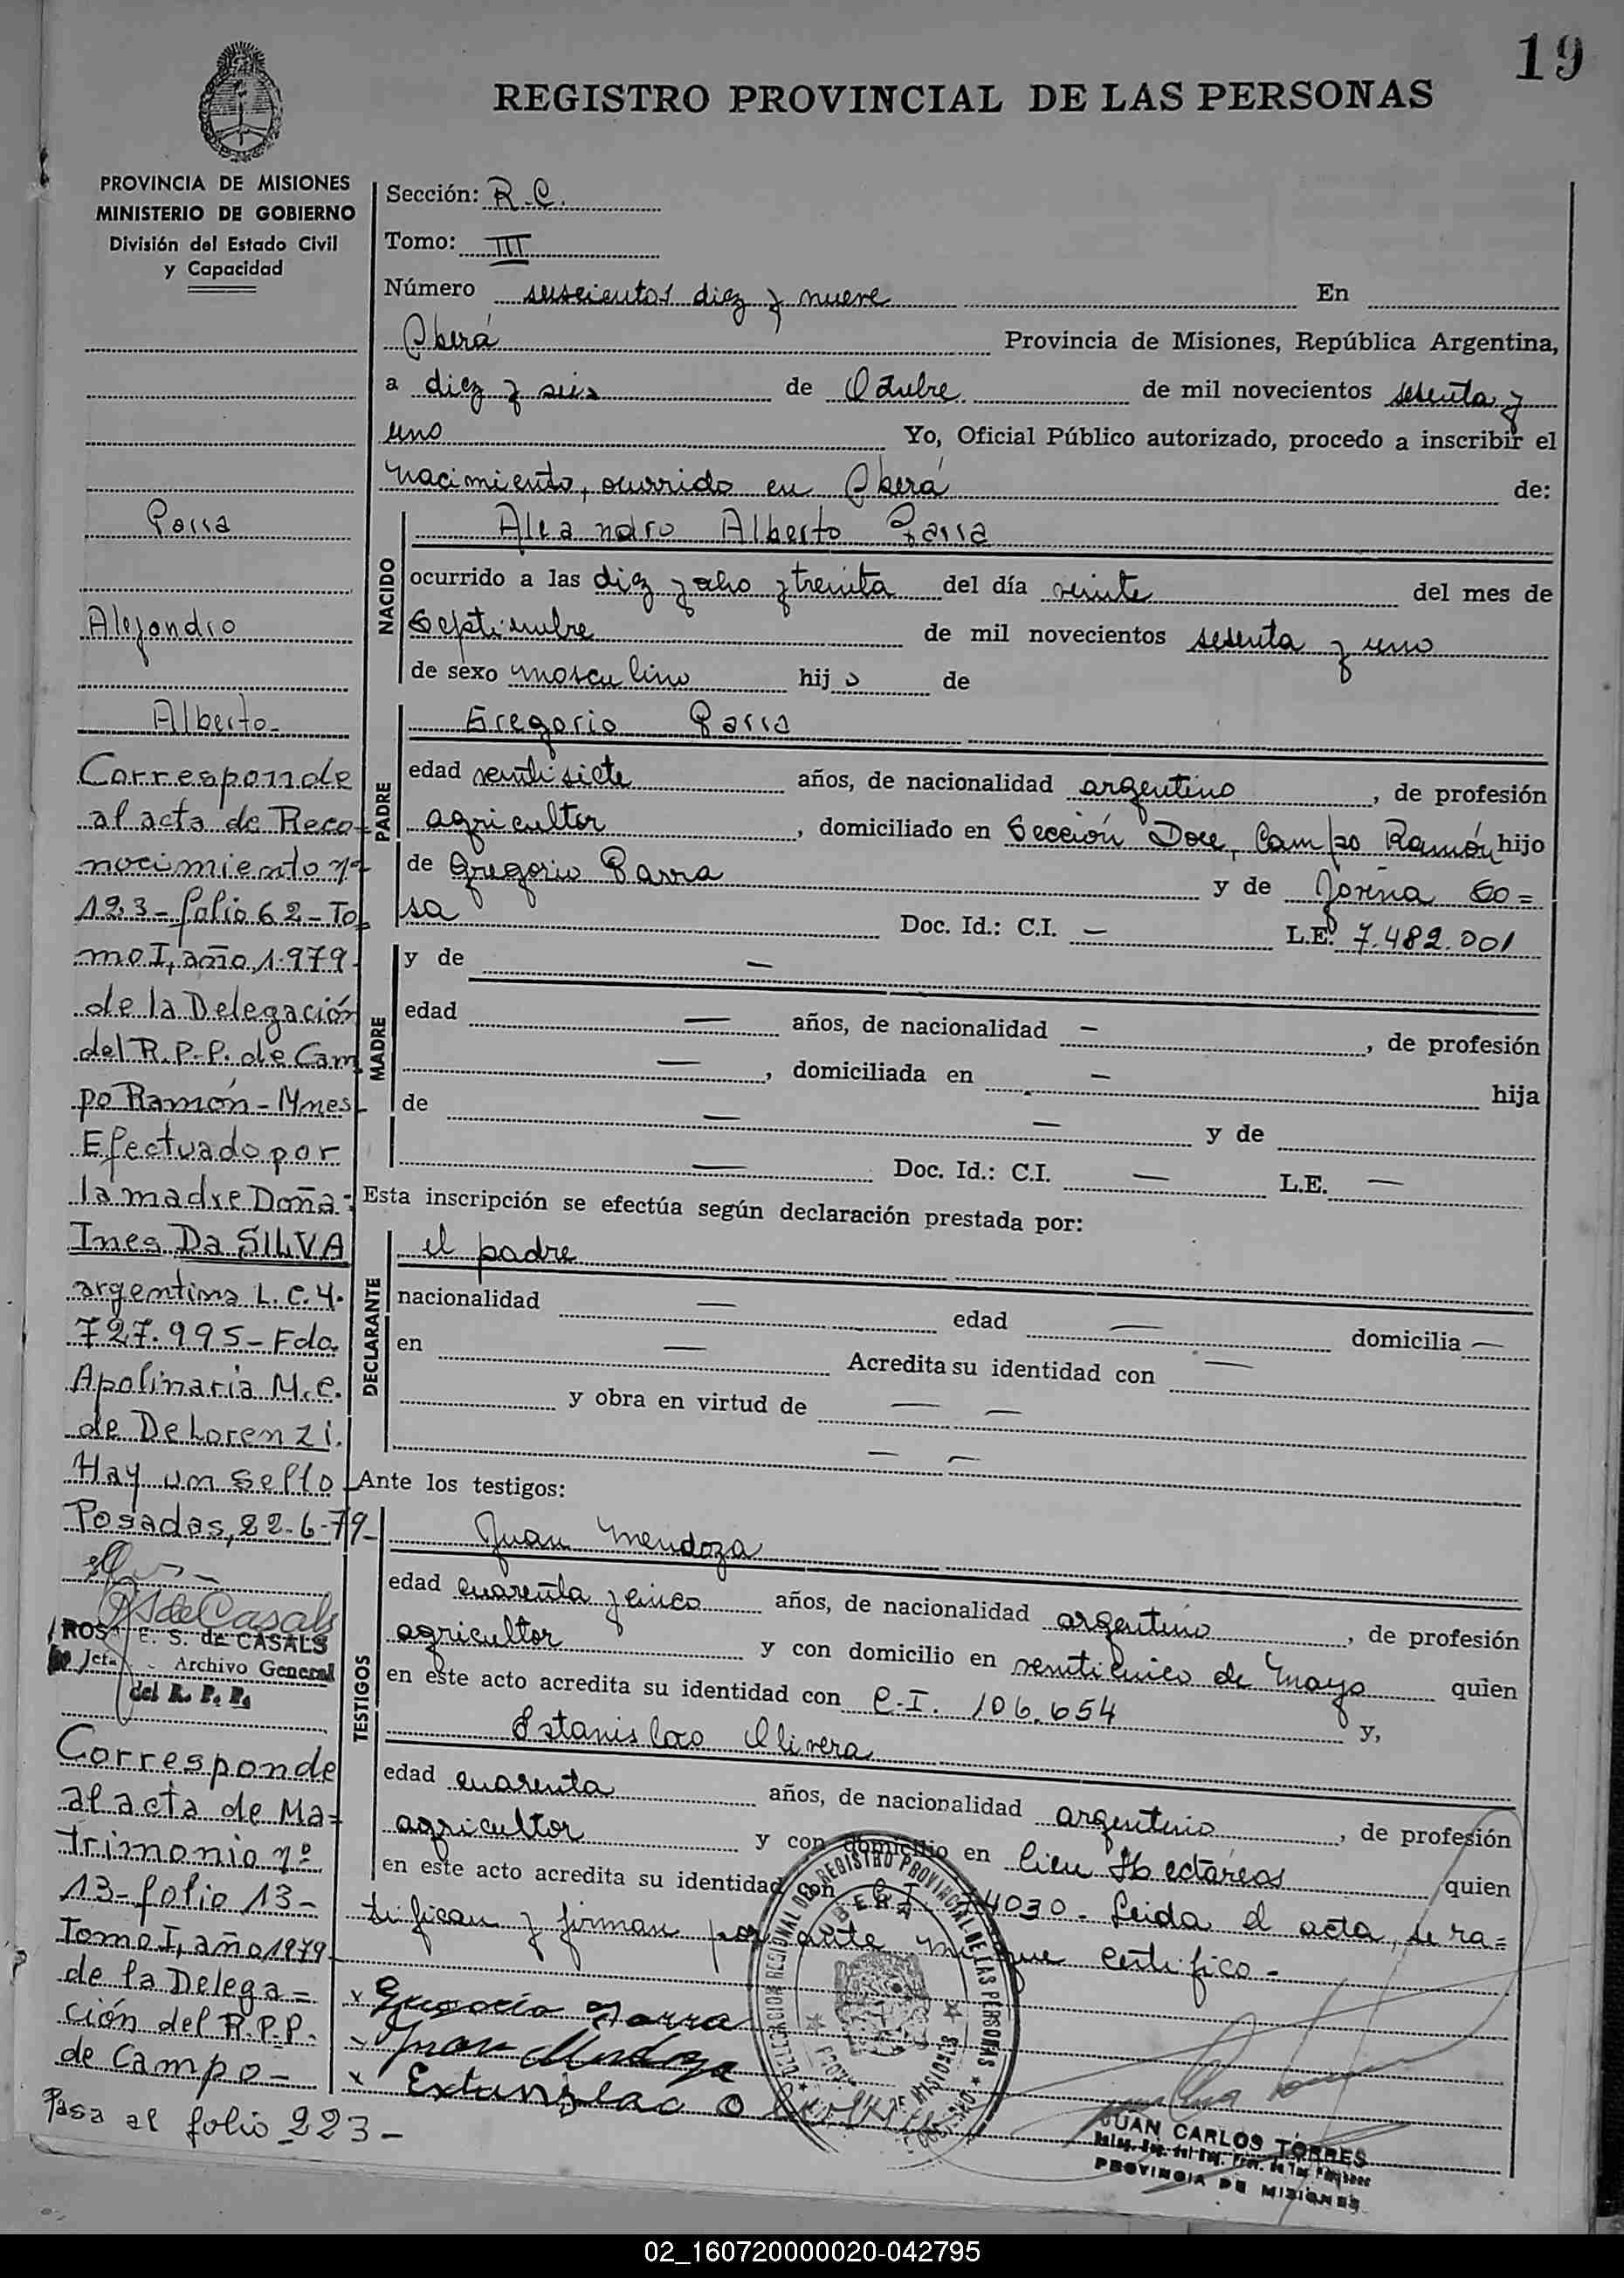 19
REGISTRO PROVINCIAL DE LAS PERSONAS
PROVINCIA DE MISIONES
MINISTERIO DE GOBIERNO
División del Estado Civil
y Capacidad
Sección: R.C.
Tomo: III
Número seiscientos diez y nueve En
Oberá Provincia de Misiones, República Argentina,
a diez y seis de Octubre de mil novecientos sesenta y
uno Yo, Oficial Público autorizado, procedo a inscribir el
nacimiento, ocurrido en Oberá de:
NACIDO
Aleandro Alberto Parra
ocurrido a las diez y ocho y treinta del día veinte del mes de
Septiembre de mil novecientos sesenta y uno
de sexo masculino hijo de
PADRE
Gregorio Parra
edad veintisiete años, de nacionalidad argentino, de profesión
agricultor, domiciliado en Sección Doce, Campo Ramón hijo
de Gregorio Parra y de Jorina So=
sa Doc. Id.: C.I. — L.E. 7.482.001
MADRE
y de —
edad — años, de nacionalidad —, de profesión
—, domiciliada en — hija
de — — y de
— Doc. Id.: C.I. — L.E. —
Esta inscripción se efectúa según declaración prestada por:
DECLARANTE
el padre
nacionalidad — edad — domicilia —
en — Acredita su identidad con —
y obra en virtud de — —
— —
Ante los testigos:
TESTIGOS
Juan Mendoza
edad cuarenta y cinco años, de nacionalidad argentino, de profesión
agricultor y con domicilio en veinticinco de Mayo quien
en este acto acredita su identidad con C.I. 106.654 y,
Estanislao Olivera
edad cuarenta años, de nacionalidad argentino, de profesión
agricultor y con domicilio en Cien Hectáreas quien
en este acto acredita su identidad con C.I. 4030 - Leida el acta, se ra=
tifican y firman por ante mi que certifico -
x Gregorio Parra
x Juan Mendoza
x Extanislao
Parra
Alejandro
Alberto-
Corresponde
al acta de Reco-
nocimiento nº
123-folio 62-To-
mo I, año 1.979-
de la Delegación
del R.P.P. de Cam
po Ramón-Mnes-
Efectuado por
la madre Doña:
Ines Da SILVA
argentina L.C.4.
727.995-Fdo.
Apolinaria M.C.
de De Lorenzi.
Hay un sello-
Posadas, 22-6-79-
E. S. de CASALS
Archivo General
del R. P. P.
Corresponde
al acta de Ma-
trimonio nº
13-folio 13-
Tomo I, año 1979-
de la Delega=
ción del R.P.P.
de Campo-
Pasa al folio 223-
DELEGACION REGIONAL DEL REGISTRO PROVINCIAL DE LAS PERSONAS
OBERA
JUAN CARLOS TORRES
PROVINCIA DE MISIONES
02_160720000020-042795